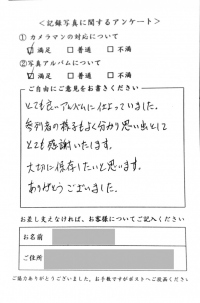 <記録写真に関するアンケート>
①カメラマンの対応について
☑ 満足 □ 普通 □ 不満
②写真アルバムについて
☑ 満足 □ 普通 □ 不満
ご自由にご意見をお書きください
とても良いアルバムに仕上っていました。
参列者の様子もよく分かり思い出として
とても感謝いたします。
大切に保存したいと思います。
ありがとうございました。
お差し支えなければ、お客様についてご記入ください
お名前
ご住所
ご協力ありがとうございました。お手数ですがポストへご投函ください